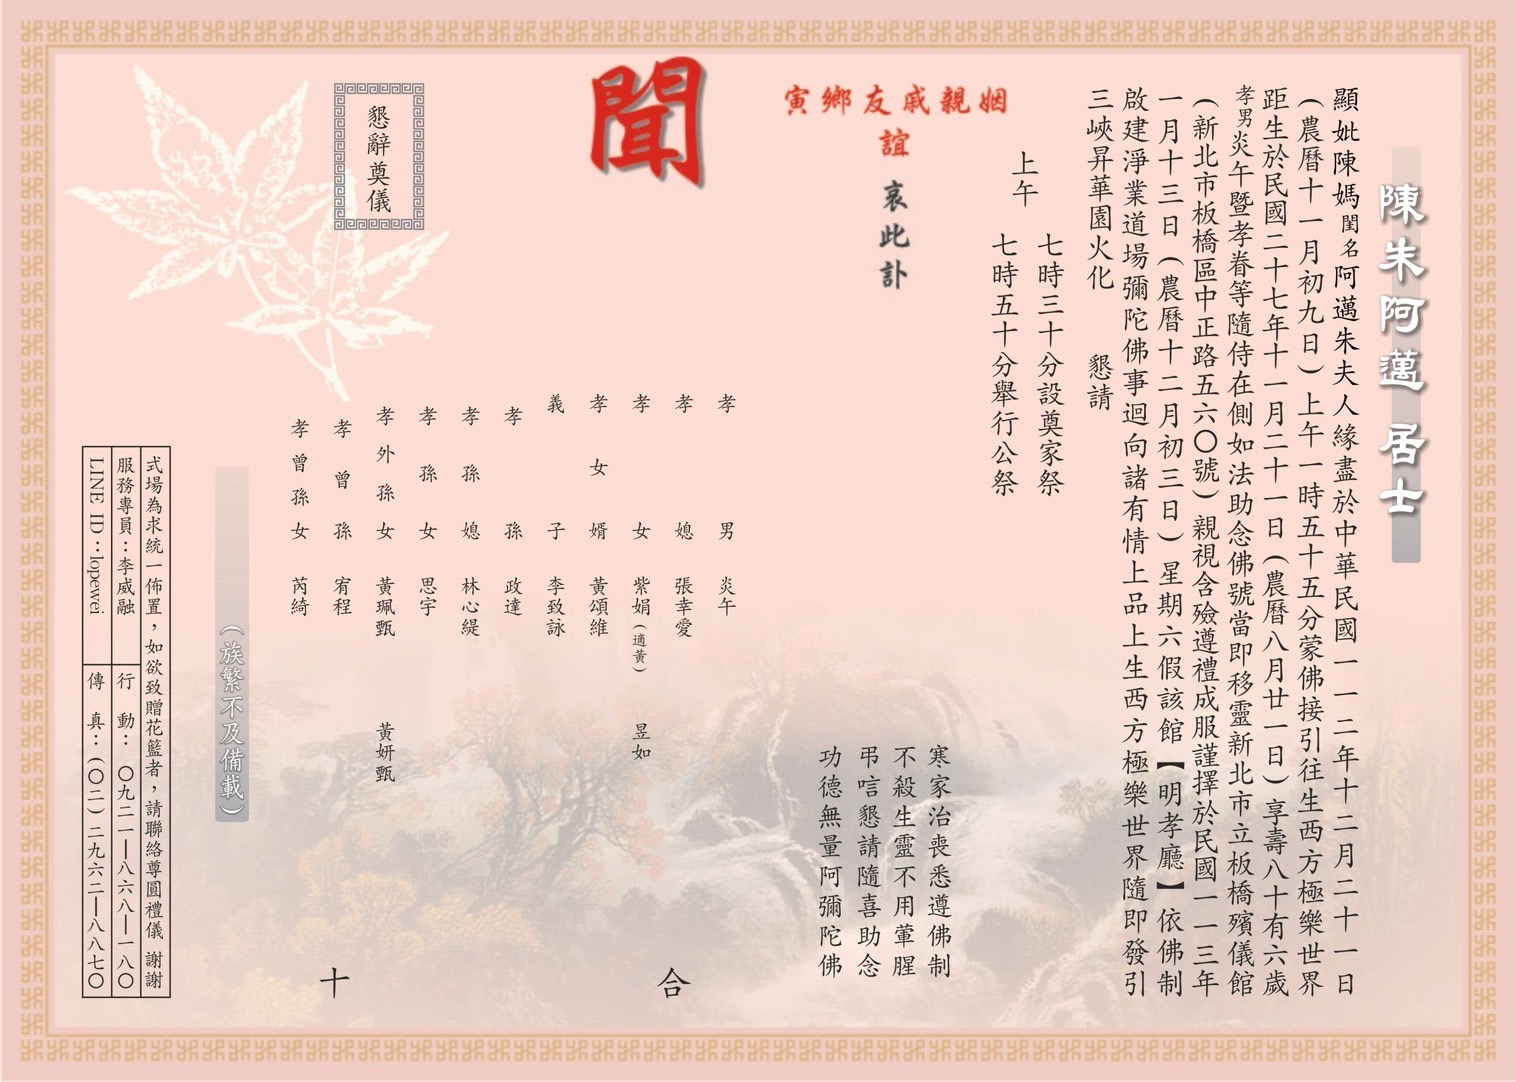 陳朱阿邁 居士
顯妣陳媽閨名阿邁朱夫人緣盡於中華民國一一二年十二月二十一日
(農曆十一月初九日)上午一時五十五分蒙佛接引往生西方極樂世界
距生於民國二十七年十一月二十一日(農曆八月廿一日)享壽八十有六歲
孝男炎午暨孝眷等隨侍在側如法助念佛號當即移靈新北市立板橋殯儀館
(新北市板橋區中正路五六〇號)親視含殮遵禮成服謹擇於民國一一三年
一月十三日(農曆十二月初三日)星期六假該館【明孝廳】依佛制
啟建淨業道場彌陀佛事迴向諸有情上品上生西方極樂世界隨即發引
三峽昇華園火化 懇請
上午
七時三十分設奠家祭
七時五十分舉行公祭
姻親戚友鄉寅
誼
哀此訃
聞
寒家治喪悉遵佛制
不殺生靈不用葷腥
弔唁懇請隨喜助念
功德無量阿彌陀佛
孝男 炎午
孝媳 張幸愛
孝女 紫娟(適黃) 昱如
孝女婿 黃頌維
義子 李致詠
孝孫 政達
孝孫媳 林心緹
孝孫女 思宇
孝外孫女 黃珮甄 黃妍甄
孝曾孫 宥程
孝曾孫女 芮綺
合
十
懇辭奠儀
(族繁不及備載)
式場為求統一佈置,如欲致贈花籃者,請聯絡尊圓禮儀 謝謝
服務專員:李威融
行動:〇九二一—八六八—一八〇
LINE ID:lopewei
傳真:(〇二)二九六二—八八七〇